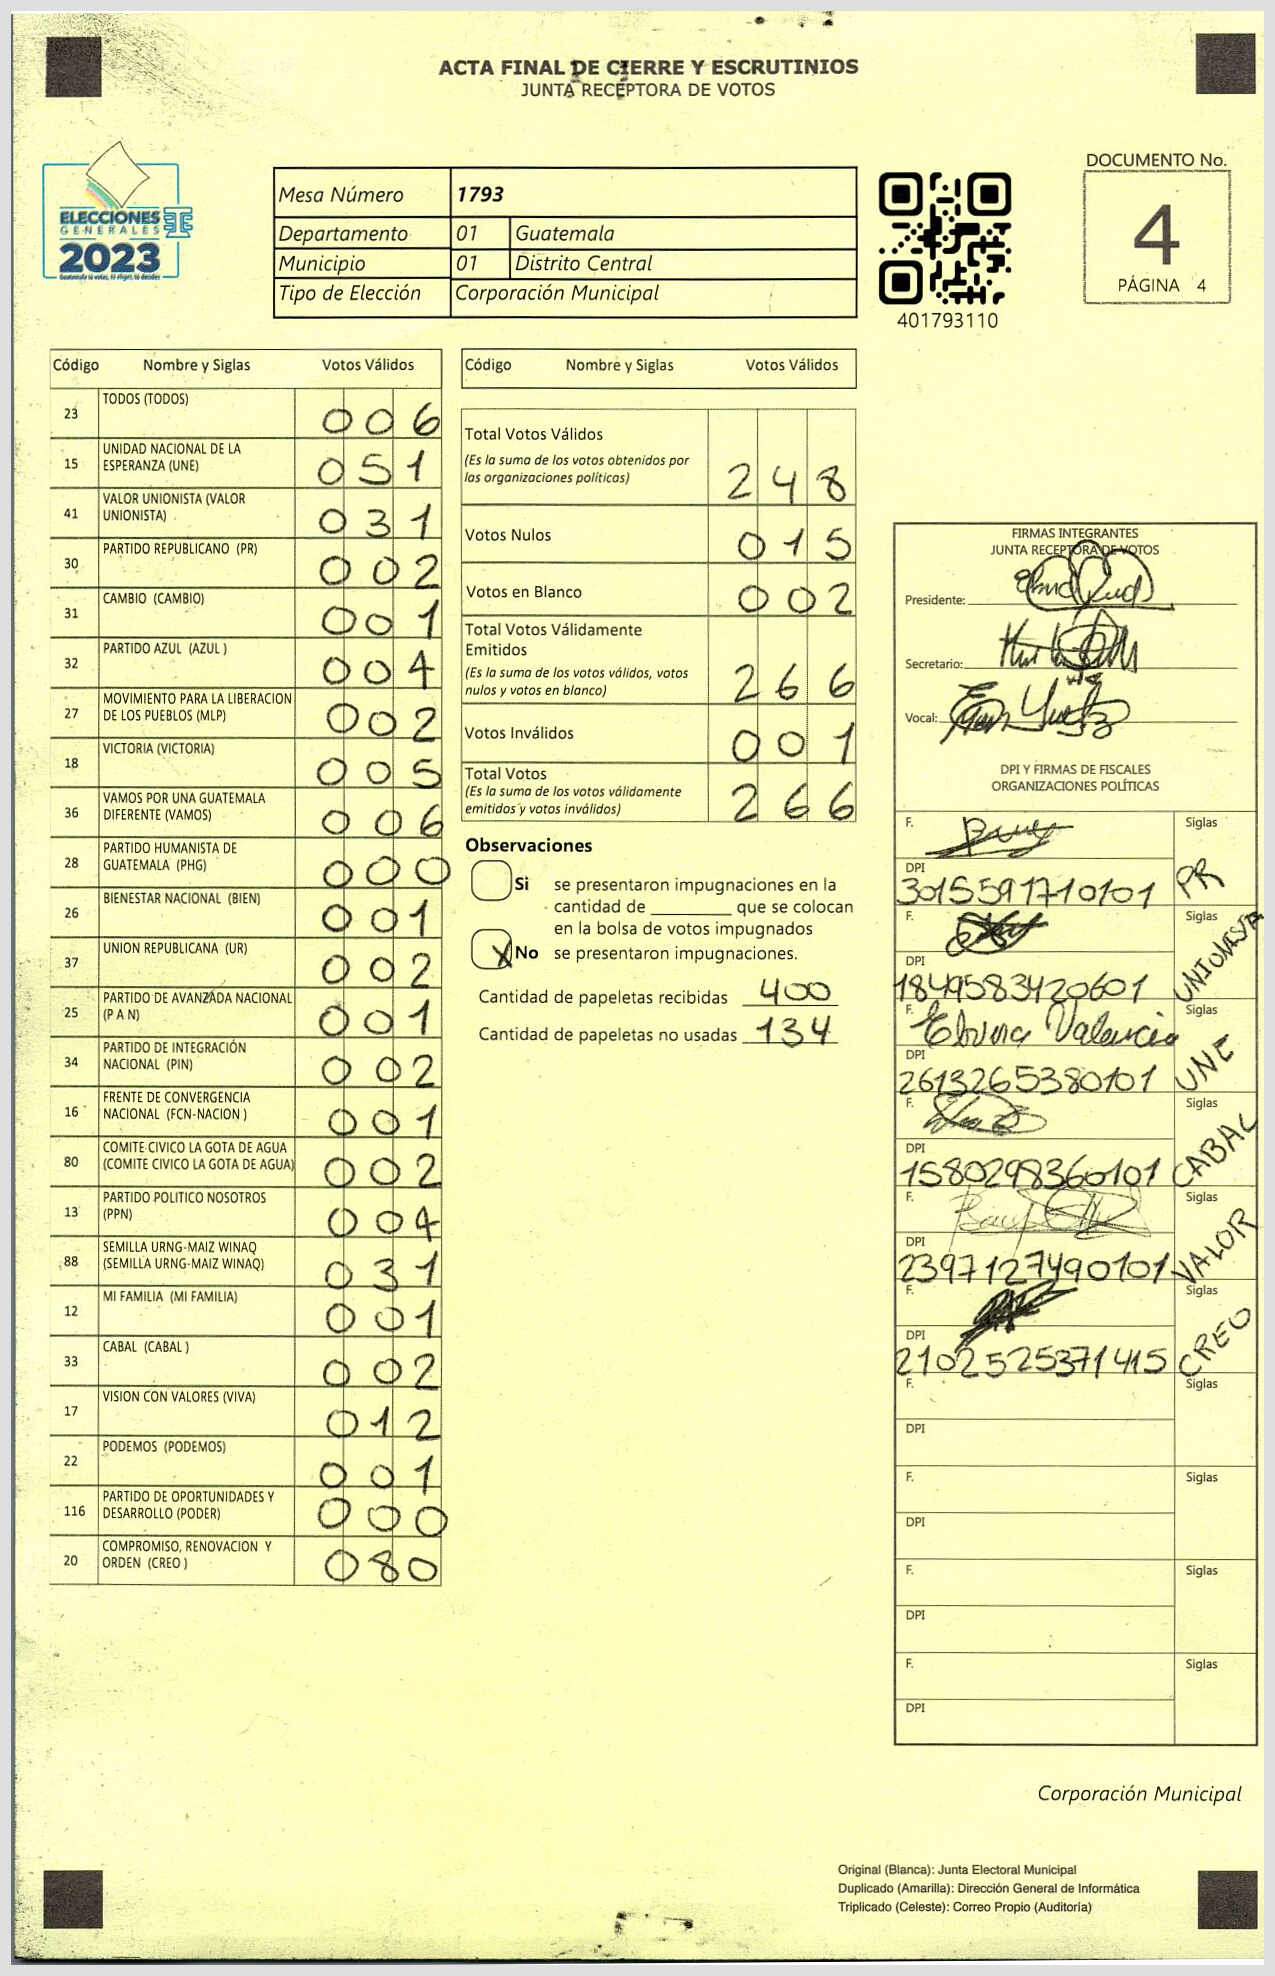 ACTA FINAL DE CIERRE Y ESCRUTINIOS
JUNTA RECEPTORA DE VOTOS
ELECCIONES
GENERALES
2023
Mesa Número 1793
Departamento 01 Guatemala
Municipio 01 Distrito Central
Tipo de Elección Corporación Municipal
401793110
DOCUMENTO No.
4
PÁGINA 4
Código Nombre y Siglas Votos Válidos
23 TODOS (TODOS) 006
15 UNIDAD NACIONAL DE LA ESPERANZA (UNE) 051
41 VALOR UNIONISTA (VALOR UNIONISTA) 031
30 PARTIDO REPUBLICANO (PR) 002
31 CAMBIO (CAMBIO) 001
32 PARTIDO AZUL (AZUL ) 004
27 MOVIMIENTO PARA LA LIBERACION DE LOS PUEBLOS (MLP) 002
18 VICTORIA (VICTORIA) 005
36 VAMOS POR UNA GUATEMALA DIFERENTE (VAMOS) 006
28 PARTIDO HUMANISTA DE GUATEMALA (PHG) 000
26 BIENESTAR NACIONAL (BIEN) 001
37 UNION REPUBLICANA (UR) 002
25 PARTIDO DE AVANZADA NACIONAL (P A N) 001
34 PARTIDO DE INTEGRACIÓN NACIONAL (PIN) 002
16 FRENTE DE CONVERGENCIA NACIONAL (FCN-NACION ) 001
80 COMITE CIVICO LA GOTA DE AGUA (COMITE CIVICO LA GOTA DE AGUA) 002
13 PARTIDO POLITICO NOSOTROS (PPN) 004
88 SEMILLA URNG-MAIZ WINAQ (SEMILLA URNG-MAIZ WINAQ) 031
12 MI FAMILIA (MI FAMILIA) 001
33 CABAL (CABAL ) 002
17 VISION CON VALORES (VIVA) 012
22 PODEMOS (PODEMOS) 001
116 PARTIDO DE OPORTUNIDADES Y DESARROLLO (PODER) 000
20 COMPROMISO, RENOVACION Y ORDEN (CREO ) 080
Código Nombre y Siglas Votos Válidos
Total Votos Válidos
(Es la suma de los votos obtenidos por
las organizaciones políticas) 248
Votos Nulos 015
Votos en Blanco 002
Total Votos Válidamente
Emitidos
(Es la suma de los votos válidos, votos
nulos y votos en blanco) 266
Votos Inválidos 001
Total Votos
(Es la suma de los votos válidamente
emitidos y votos inválidos) 266
Observaciones
Si se presentaron impugnaciones en la
cantidad de ________ que se colocan
en la bolsa de votos impugnados
X No se presentaron impugnaciones.
Cantidad de papeletas recibidas 400
Cantidad de papeletas no usadas 134
FIRMAS INTEGRANTES
JUNTA RECEPTORA DE VOTOS
Presidente:
Secretario:
Vocal:
DPI Y FIRMAS DE FISCALES
ORGANIZACIONES POLÍTICAS
F. Siglas
DPI
3015591710101 PR
F. Siglas
DPI
1849583420601 UNIONISTA
F. Valencia Siglas
DPI
2613265380101 UNE
F. Siglas
DPI
1580298360101 CABAL
F. Siglas
DPI
2397127490101 VALOR
F. Siglas
DPI
2102525371415 CREO
F. Siglas
DPI
F. Siglas
DPI
F. Siglas
DPI
F. Siglas
DPI
Corporación Municipal
Original (Blanca): Junta Electoral Municipal
Duplicado (Amarilla): Dirección General de Informática
Triplicado (Celeste): Correo Propio (Auditoría)